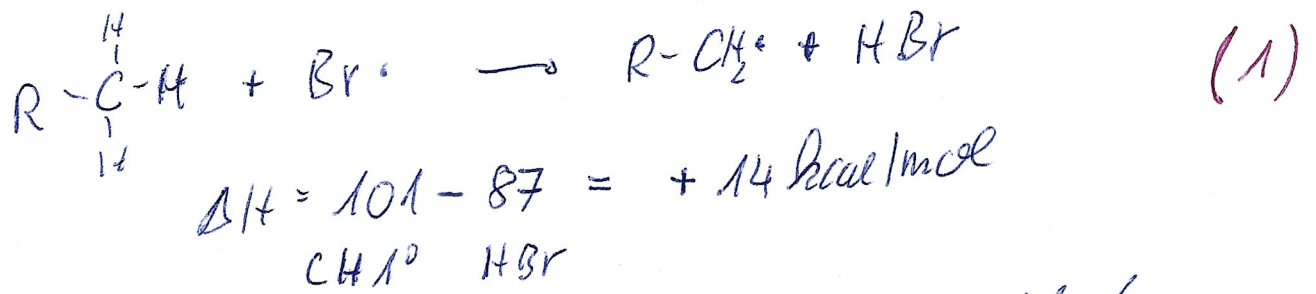 H
R-C-H + Br· → R-CH₂· + HBr (1)
H
ΔH = 101 - 87 = + 14 kcal/mol
CH 1° HBr